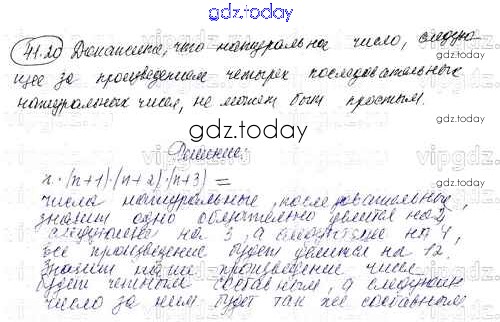 gdz.today
41.20 Докажите, что натуральное число, следую-
щее за произведением четырех последовательных
натуральных чисел, не может быть простым.
gdz.today
Решение:
n·(n+1)·(n+2)·(n+3)=
числа натуральные, последовательные,
значит одно обязательно делится на 2,
следующее на 3, а следующее на 4,
все произведение будет делится на 12.
Значит наше произведение чисел
будет четным составным, а следующее
число за ним будет так же составным
gdz.today